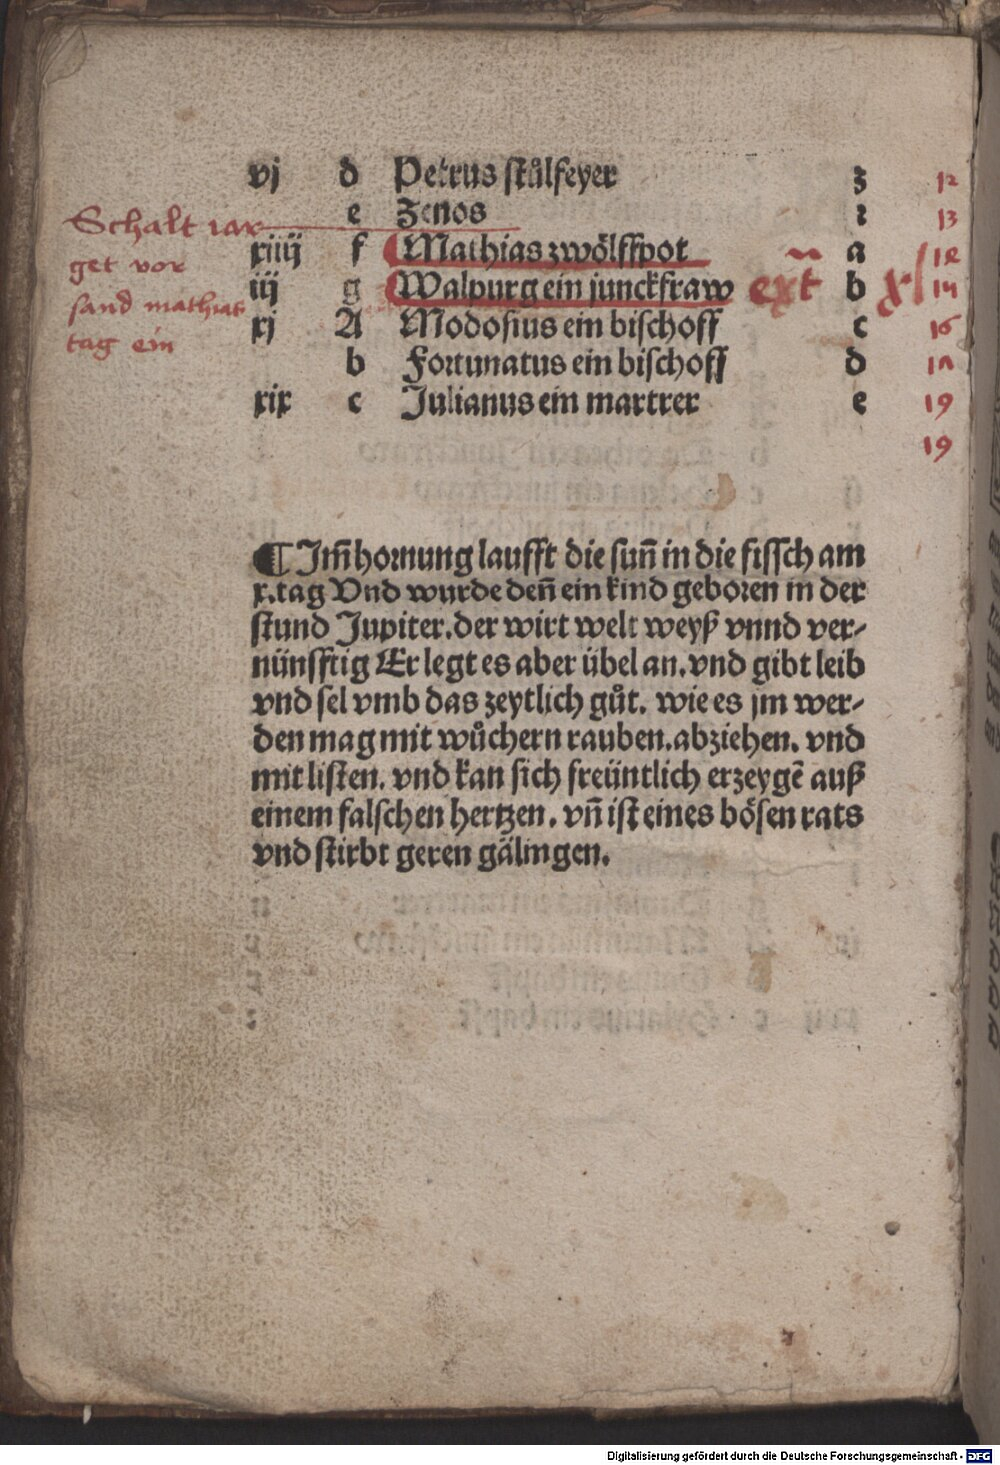 vj d Petrus stůlfeyer z 12
e Zenos 1 13
xiiij f Mathias zwölffpot a 12
iij g Walpurg ein junckfraw ext b xl 14
xj A Modosius ein bischoff c 16
b Fortunatus ein bischoff d 17
xix c Julianus ein martrer e 19
19
Schalt iar
get vor
sand mathias
tag ein
¶ Im̄ hornung laufft die sun̄ in die fissch am
x.tag Vnd wurde den̄ ein kind geboren in der
stund Jupiter.der wirt welt weyß vnnd ver-
nünsftig Er legt es aber übel an.vnd gibt leib
vnd sel vmb das zeytlich gůt. wie es jm wer-
den mag mit wůchern rauben.abziehen. vnd
mit listen. vnd kan sich freüntlich erzeygē auß
einem falschen hertzen. vn̄ ist eines bösen rats
vnd stirbt geren gälingen.
Digitalisierung gefördert durch die Deutsche Forschungsgemeinschaft - DFG